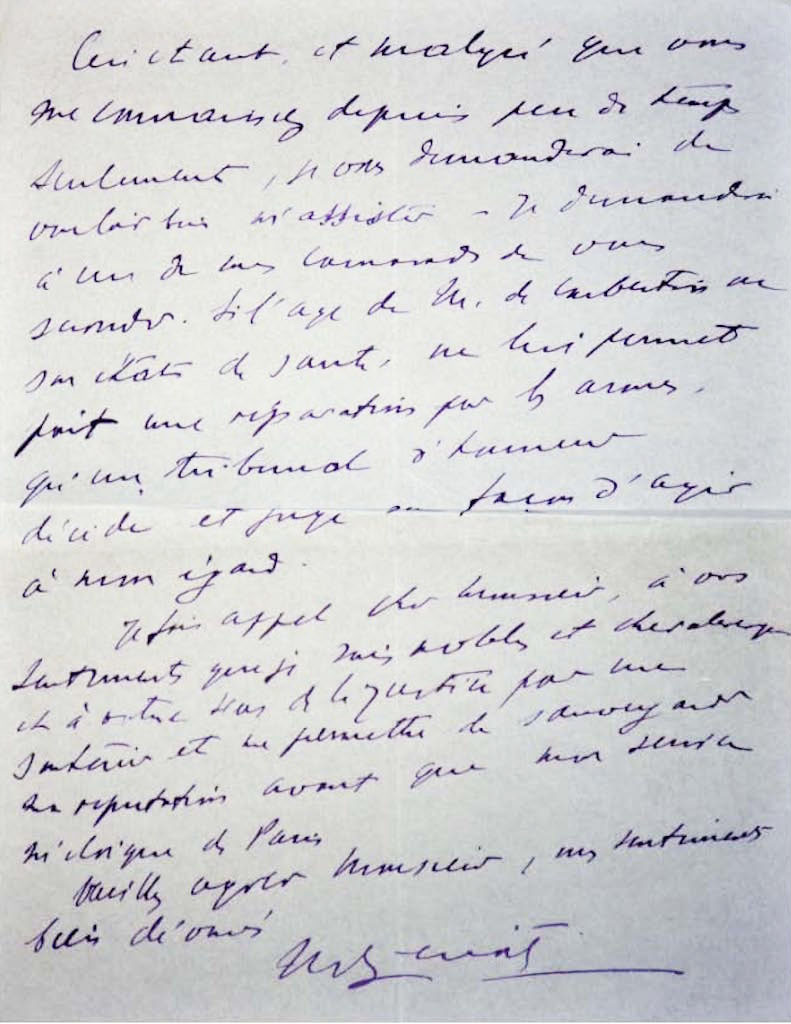 Ceci étant, et malgré que vous
me connaissiez depuis peu de temps
seulement, je vous demanderai de
vouloir bien m'assister – Je demanderai
à un de mes camarades de vous
seconder. Si l'age de M. de Coubertin ou
son état de santé, ne lui permet
point une réparation par les armes,
qu'un tribunal d'honneur
décide et juge sa façon d'agir
à mon égard.
Je fais appel cher monsieur, à vos
sentiments que je sais nobles et chevaleresques
et à votre sens de la justice pour me
soutenir et me permettre de sauvegarder
ma reputation avant que mon service
m'éloigne de Paris
Veuillez agréer Monsieur, mes sentiments
bien dévoués